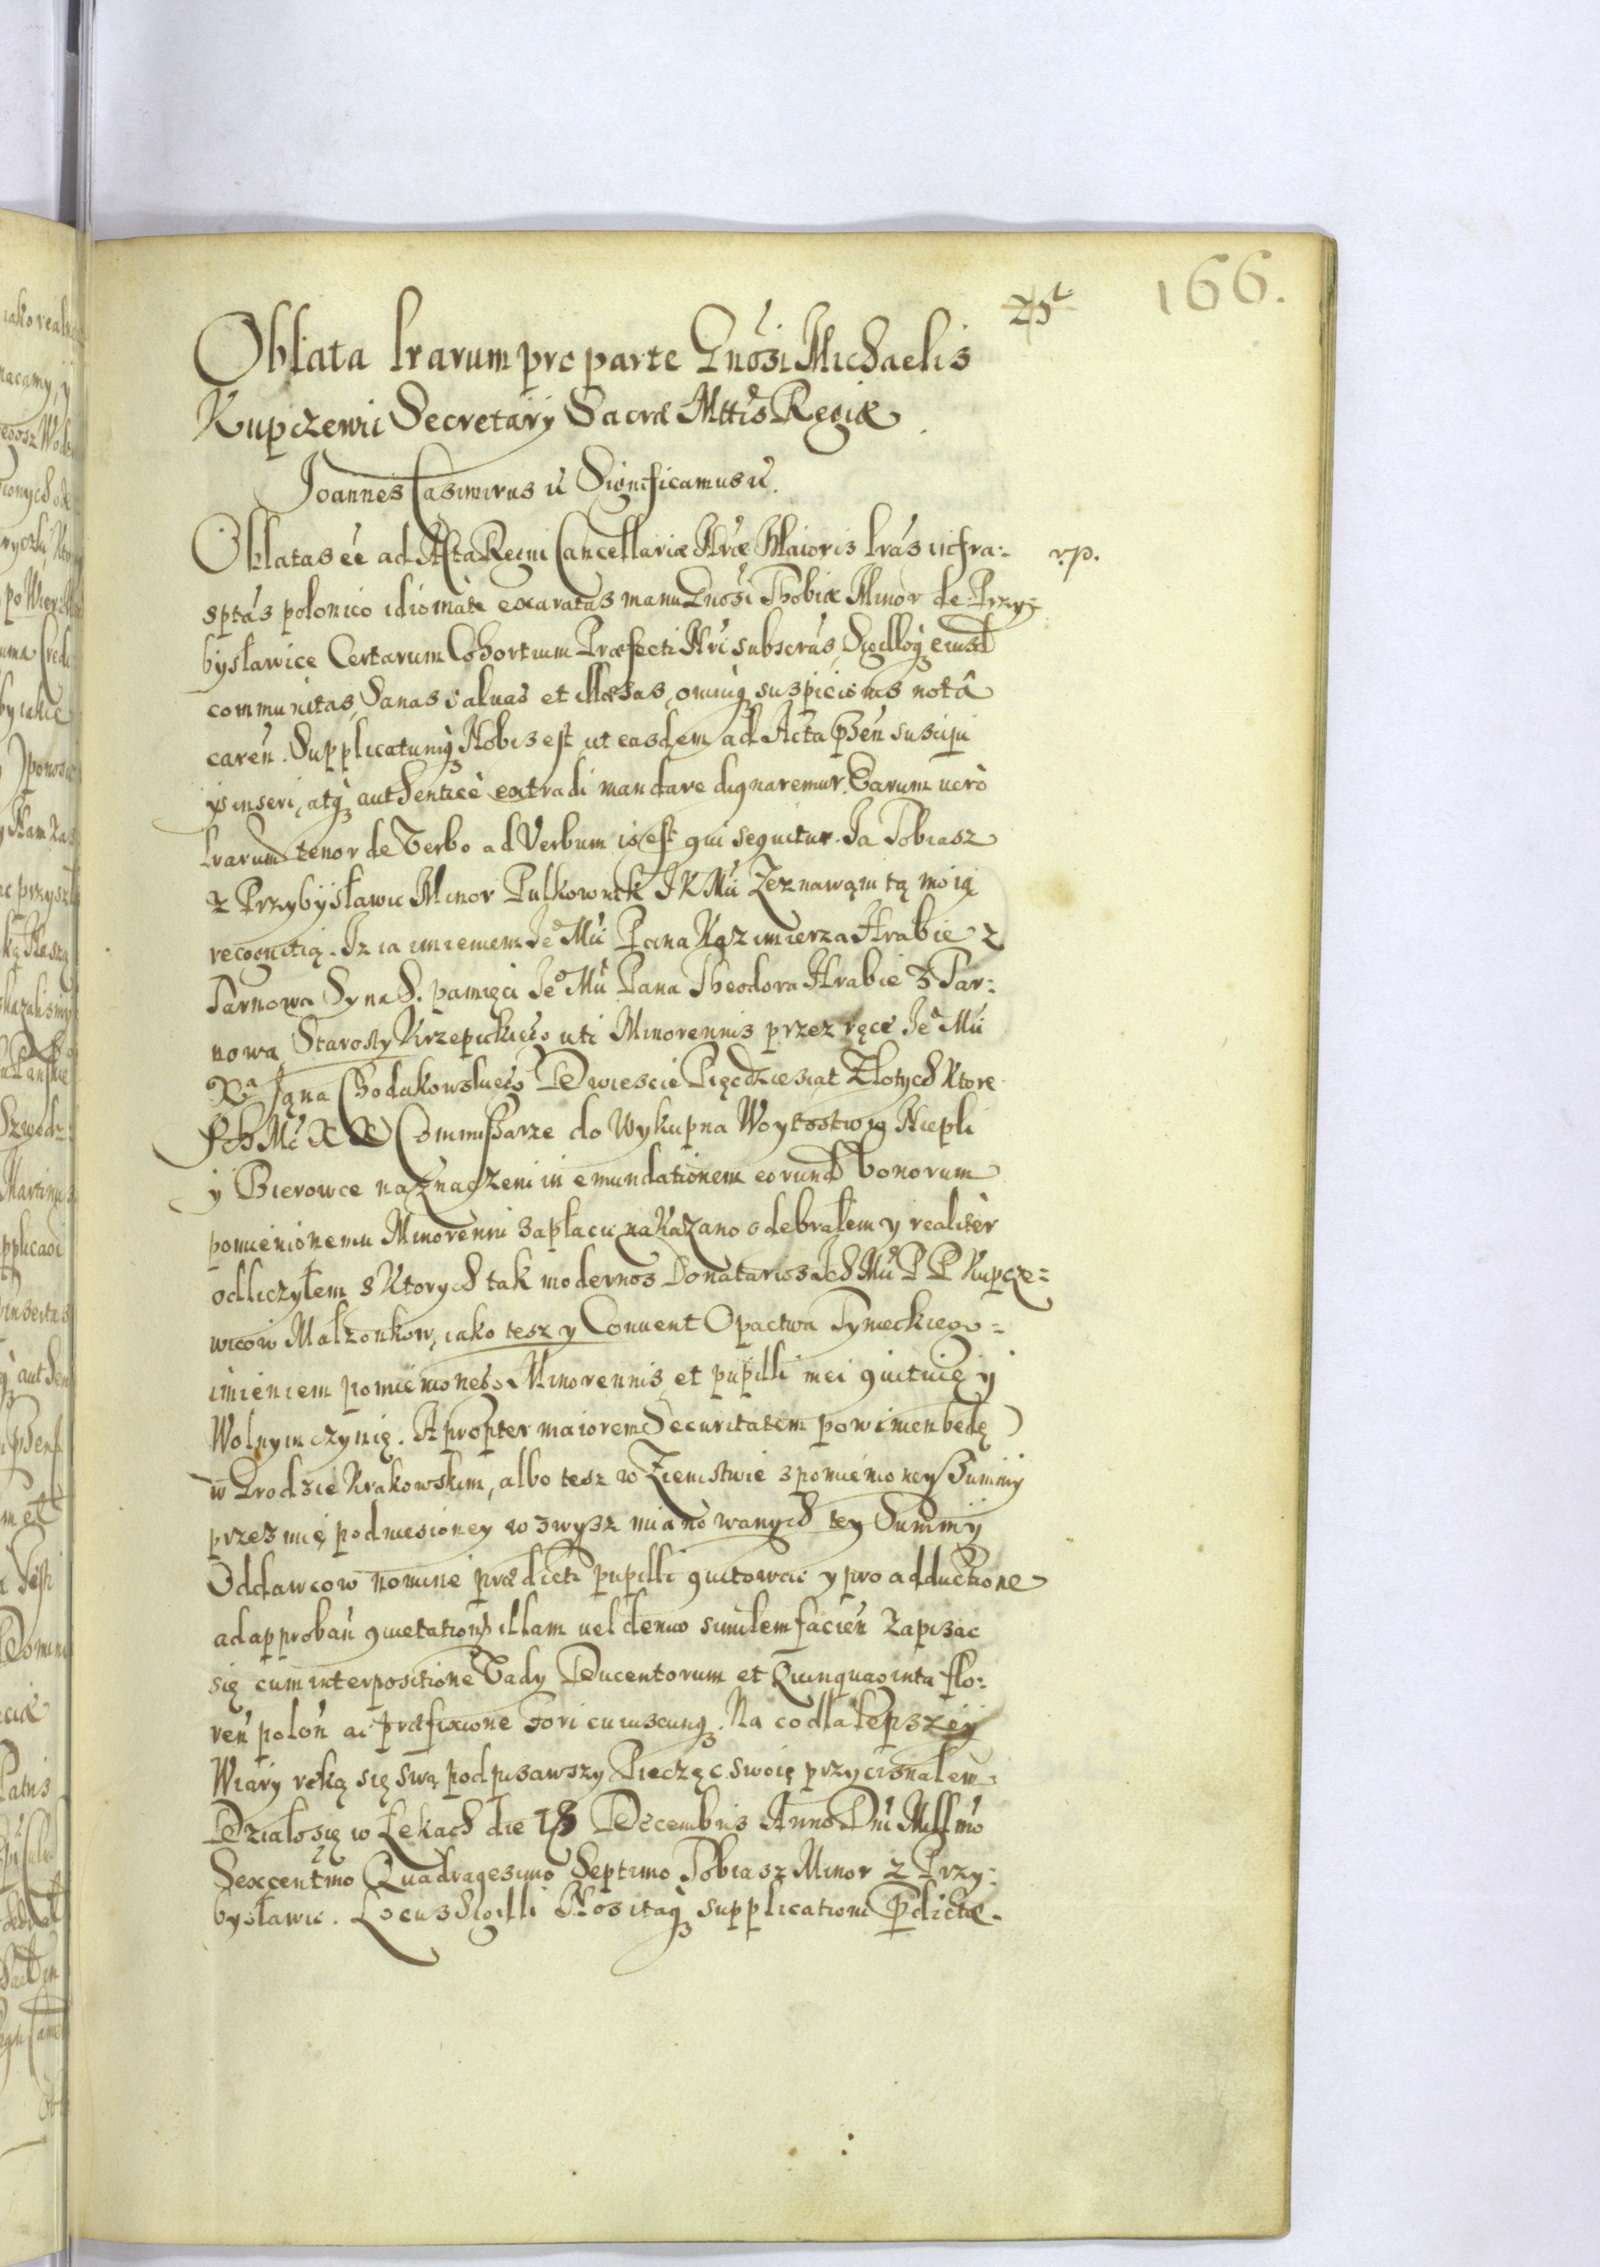 166.
Oblata lrarum pro parte Gnosi Michaelis
Kupczewic Secretarÿ Sacræ Mttis Regiæ
Joannes Casimirus etc Significamus etc.
Oblatas ee ad Acta Regni Cancellariæ Nræ Maioris lras infra=
sptas polonico idiomate exaratas manu Gnosi Thobiæ Minor de Przy=
bysławice Certarum Cohortium Præfecti Nri subscras, Sigilloq eiusd
communitas, Sanas saluas et illæsas, omniq suspicionis notâ
caren. Supplicatumq Nobis est ut easdem ad Acta psen suscipi
ÿs inseri, atq authenticè extradi mandare dignaremur. Earum verò
lrarum tenor de Verbo ad Verbum is est qui sequitur. Ja Tobiasz
z Przybysławic Minor Pułkownik J K Mci Zeznawąm tą moią
recognitią. Iz ia imieniem Je° Mci Pana Kazimierza Hrabie z
Tarnowa Syna S. pamięci Je° Mci Pana Theodora Hrabie z Tar=
nowa Starosty Krzepickiego uti Minorennis przez ręce Je° Mci
Xa Jana Chodakowskiego Dwiescie Pięcdziesiat Złotych Ktore
Jch Mc X X Commissarze do Wykupna Woytostwa Niepli
y Bierowce naznaczeni in emundationem eorund bonorum
pomienionemu Minorenni zapłacic nakazano odebrałem y realiter
odliczyłem z Ktorych tak modernos Donatarios Jch Mci P P Kupcze=
wicow Małzonkow, iako tesz y Conuent Opactwa Tynieckiego=
imieniem pomienionego Minorennis et pupilli mei quituię y
Wolnym czynię. A propter maiorem Securitatem powinien będę
w Grodzie Krakowskim, albo tesz w Ziemstwie z pomienioney Summy
przez mię podniesioney w zwysz mianowanych tey Summy
Oddawcow nomine prædicti pupilli quitowac y pro adductione
ad approban quietationis illam uel denuo similem facien Zapisac
się cum interpositione Vady Ducentorum et Quinquaginta flo=
ren polon ac præfixione fori cuiuscunq. Na co dla lepszey
Wiary reką się swą podpisawszy Pieczęc swoię przycisnałem
Działosię w Łekach die 18 Decembris Anno Dni Millmo
Sexcentmo Quadragesimo Septimo Tobiasz Minor z Przy=
bysławic. Locus Sigilli Nos itaq supplicationi pdictæ